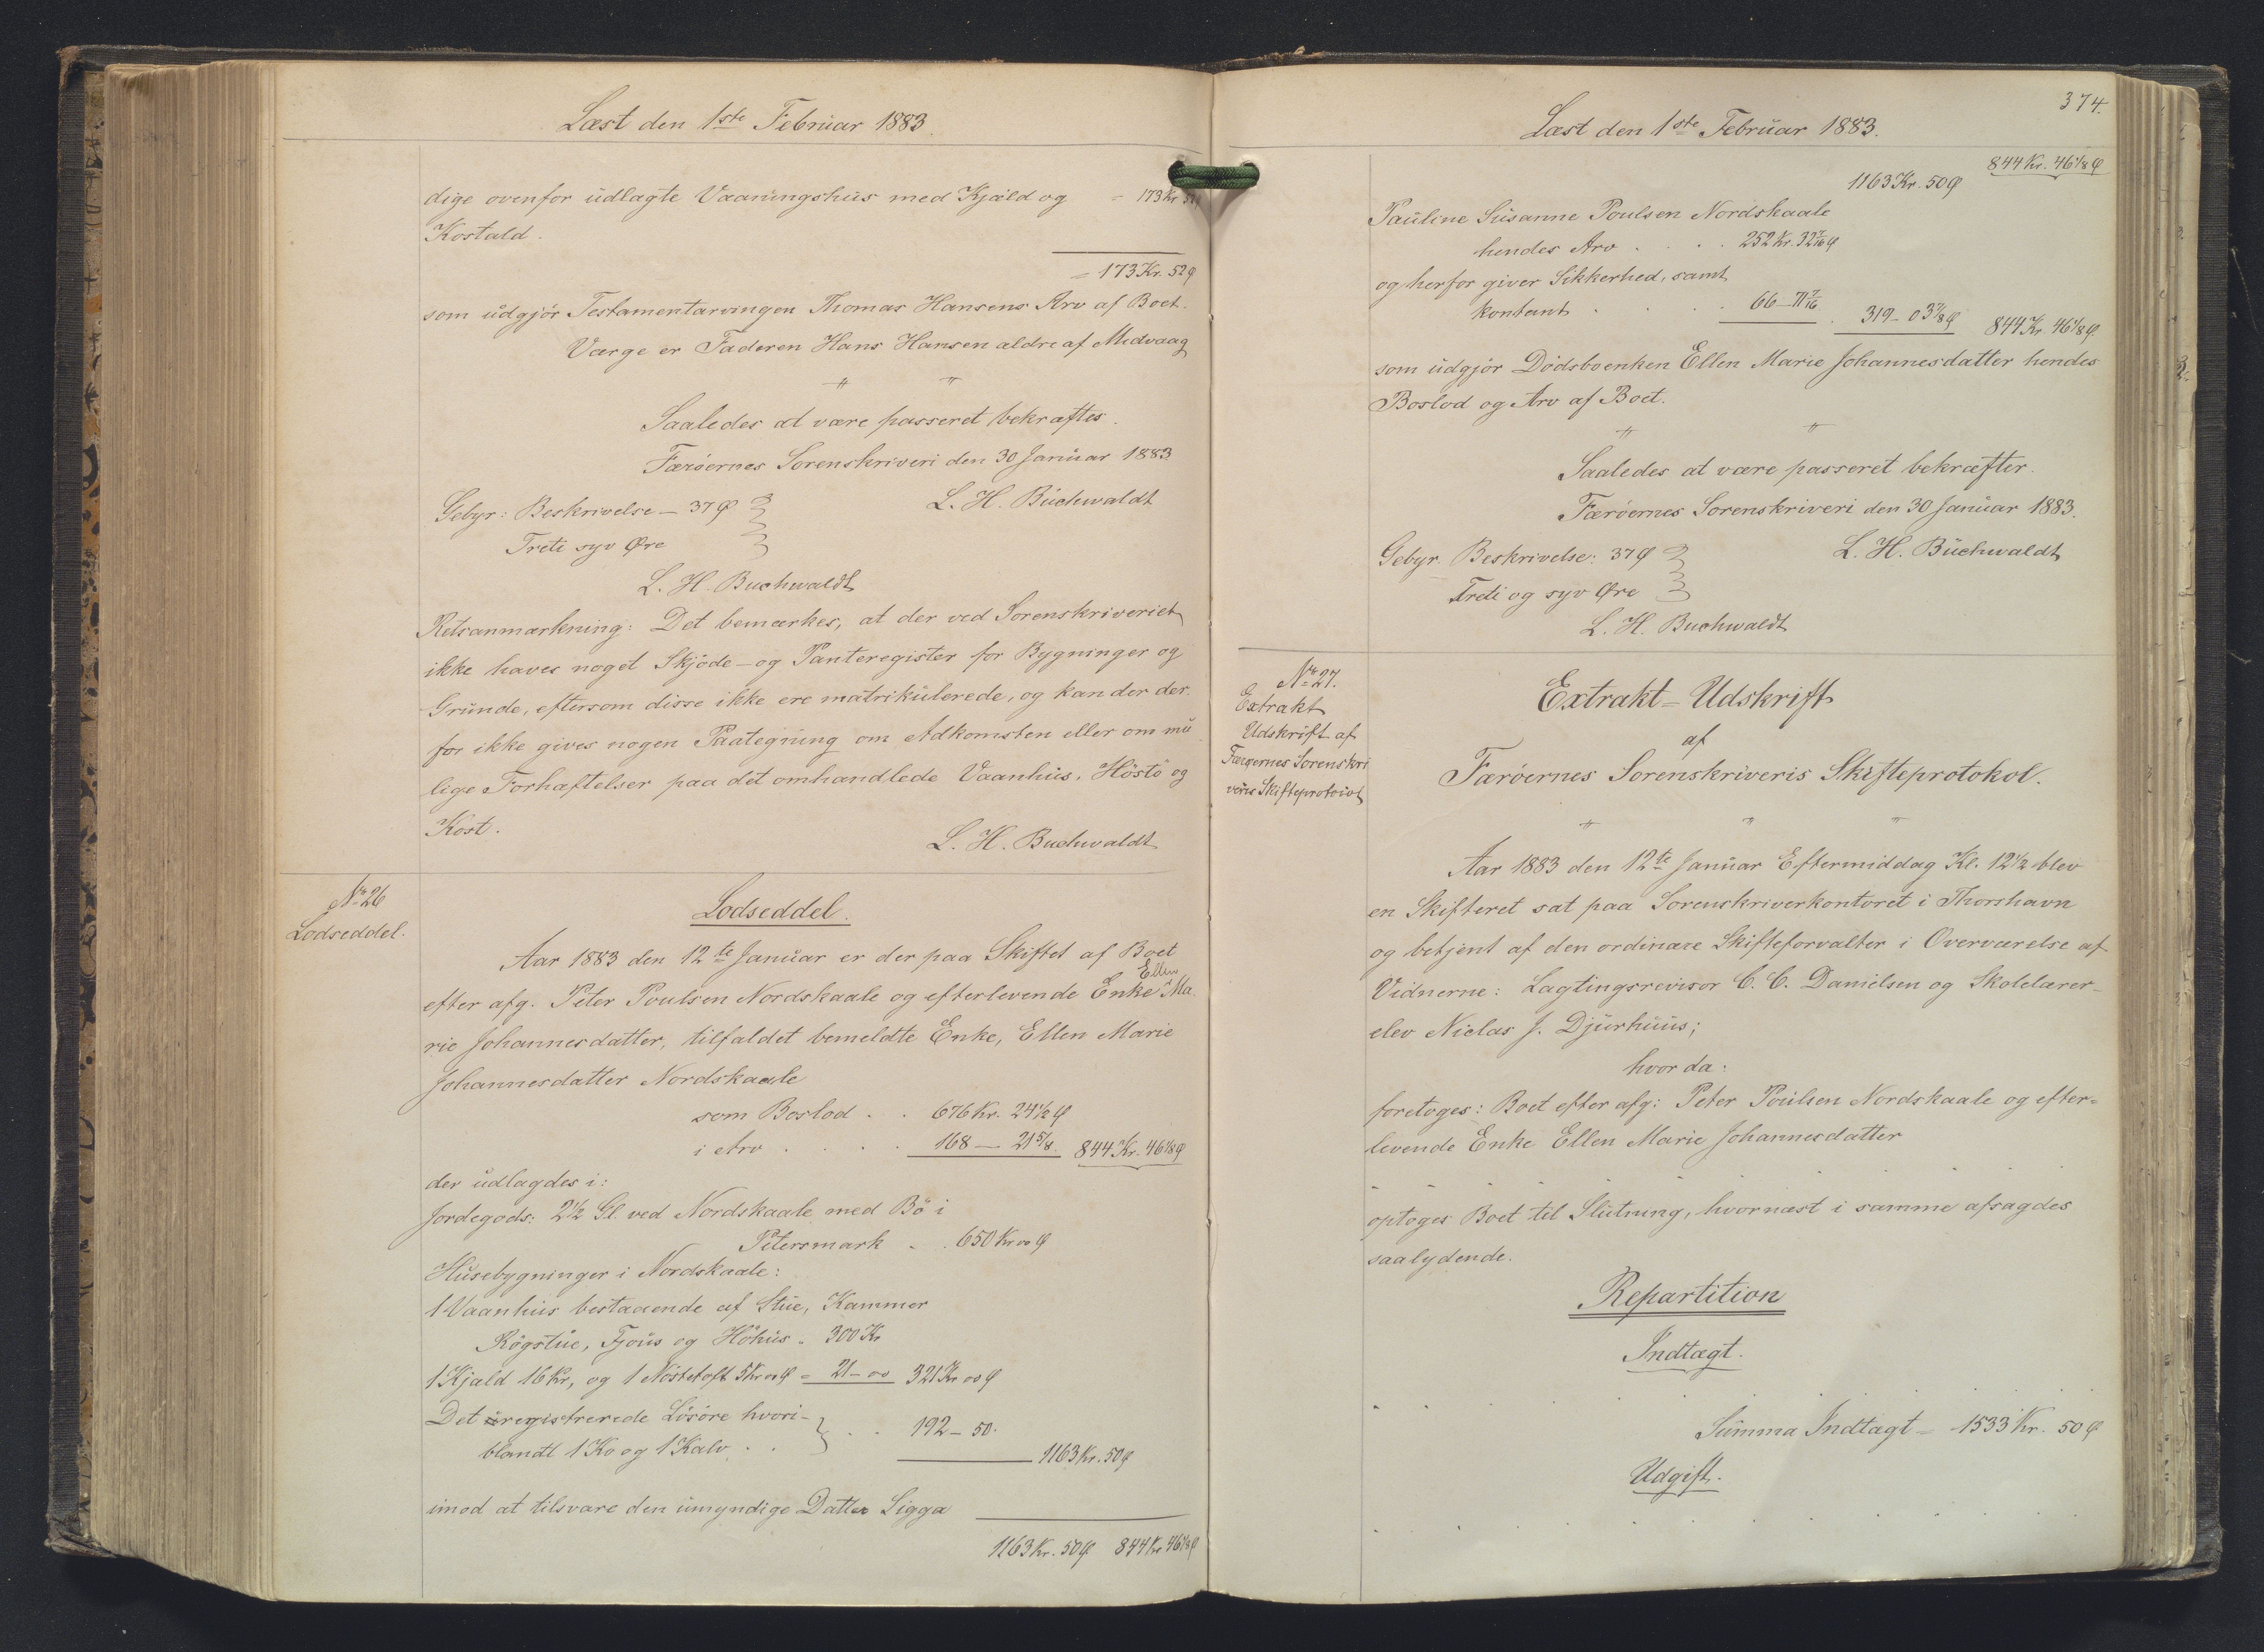 Læst den 1ste Februar 1883.
dige ovenfor udlagte Vaaningshus med Kjæld og = 173 Kr 52
Kostald.
= 173 Kr. 52 Ø
som udgjør Testamentarvingen Thomas Hansens Arv af Boet.
Værge er Faderen Hans Hansen ældre af Midvaag
" "
Saaledes at være passeret bekræftes.
Færöernes Sorenskriveri den 30 Januar 1883
Gebyr: Beskrivelse – 37 Ø L. H. Buchwaldt
Treti syv Øre
L. H. Buchwaldt
Retsanmærkning: Det bemærkes, at der ved Sorenskriveriet
ikke haves noget Skjöde- og Panteregister for Bygninger og
Grunde, eftersom disse ikke ere matrikulerede, og kan der der-
for ikke gives nogen Paategning om Adkomsten eller om mu-
lige Forhæftelser paa det omhandlede Vaanhus, Hösto og
Kost.
L. H. Buchwaldt
No 26
Lodseddel.
Lodseddel.
Aar 1883 den 12te Januar er der paa Skiftet af Boet
efter afg. Peter Poulsen Nordskaale og efterlevende Enke Ellen Ma-
rie Johannesdatter, tilfaldet bemeldte Enke, Ellen Marie
Johannesdatter Nordskaale
som Boslod . . 676 Kr. 24 1/2 Ø
i Arv . . . . 168 – 21 5/8. 844 Kr. 46 1/8 Ø
der udlagdes i:
Jordegods: 2 1/2 Gl. ved Nordskaale med Bö i
Petersmark . . 650 Kr 00 Ø
Husebygninger i Nordskaale:
1 Vaanhus bestaaende af Stue, Kammer
Rögstue, Fjøus og Höhus . 300 Kr
1 Kjæld 16 Kr, og 1 Nöstetoft 5 Kr 00 Ø = 21 – 00 321 Kr 00 Ø
Det uregistrerede Lösöre hvori-
blandt 1 Ko og 1 Kalv . . . . 192 – 50.
1163 Kr. 50 Ø
imod at tilsvare den umyndige Datter Sigga
1163 Kr. 50 Ø 844 Kr 46 1/8 Ø
374.
Læst den 1ste Februar 1883.
844 Kr. 46 1/8 Ø
1163 Kr. 50 Ø
Pauline Susanne Poulsen Nordskaale
hendes Arv . . . . 252 Kr. 32 7/16 Ø
og herfor giver Sikkerhed, samt
kontant . . . . 66 – 71 7/16 319 – 03 7/8 Ø 844 Kr. 46 1/8 Ø
som udgjör Dödsboenken Ellen Marie Johannesdatter hendes
Boslod og Arv af Boet.
" "
Saaledes at være passeret bekræfter.
Færöernes Sorenskriveri den 30 Januar 1883.
Gebyr. Beskrivelse: 37 Ø L. H. Buchwaldt
Treti og syv Øre
L. H. Buchwaldt
No 27.
Extrakt
Udskrift af
Færøernes Sorenskri
veris Skifteprotocol
Extrakt-Udskrift
af
Færöernes Sorenskriveris Skifteprotokol.
" " "
Aar 1883 den 12te Januar Eftermiddag Kl. 12 1/2 blev
en Skifteret sat paa Sorenskriverkontoret i Thorshavn
og betjent af den ordinære Skifteforvalter i Overværelse af
Vidnerne: Lagtingsrevisor C. C. Danielsen og Skolelærer-
elev Niclas J. Djurhuus;
hvor da:
foretoges: Boet efter afg: Peter Poulsen Nordskaale og efter-
levende Enke Ellen Marie Johannesdatter
optoges Boet til Slutning, hvornæst i samme afsagdes
saalydende.
Repartition
Indtægt.
Summa Indtægt = 1533 Kr. 50 Ø
Udgift.